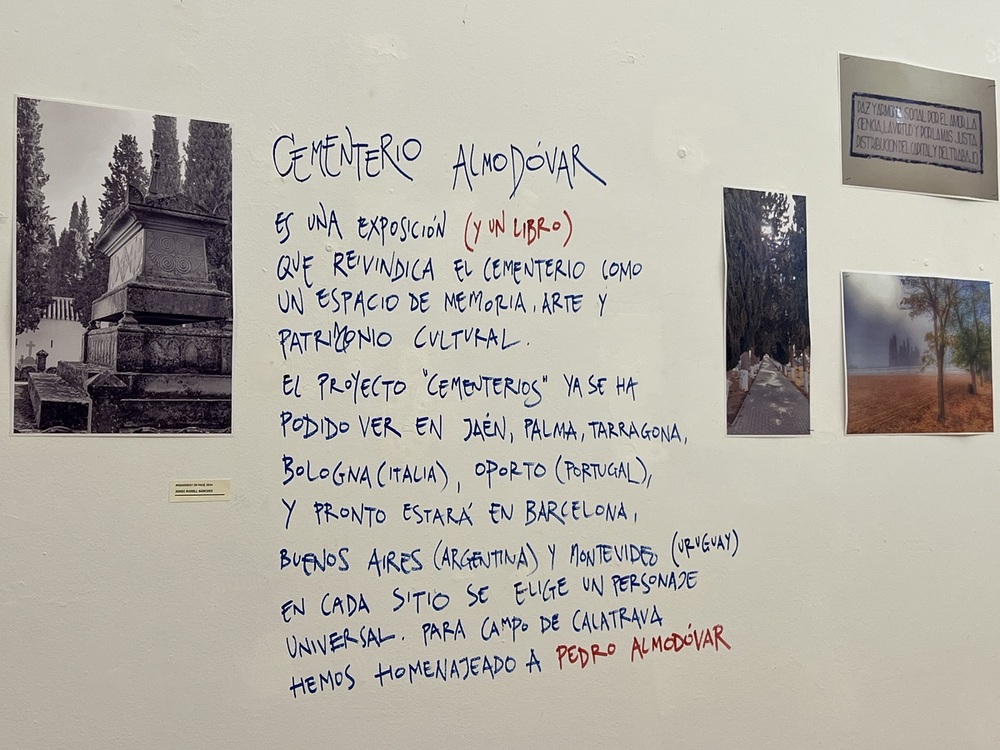 CEMENTERIO ALMODÓVAR
ES UNA EXPOSICIÓN (Y UN LIBRO)
QUE REIVINDICA EL CEMENTERIO COMO
UN ESPACIO DE MEMORIA, ARTE Y
PATRIMONIO CULTURAL.
EL PROYECTO "CEMENTERIOS" YA SE HA
PODIDO VER EN JAÉN, PALMA, TARRAGONA,
BOLOGNA (ITALIA), OPORTO (PORTUGAL),
Y PRONTO ESTARÁ EN BARCELONA,
BUENOS AIRES (ARGENTINA) Y MONTEVIDEO (URUGUAY)
EN CADA SITIO SE ELIGE UN PERSONAJE
UNIVERSAL. PARA CAMPO DE CALATRAVA
HEMOS HOMENAJEADO A PEDRO ALMODÓVAR
PAZ Y ARMONIA SOCIAL POR EL AMOR, LA
CIENCIA, LA VIRTUD Y POR LA MAS JUSTA
DISTRIBUCION DEL CAPITAL Y DEL TRABAJO